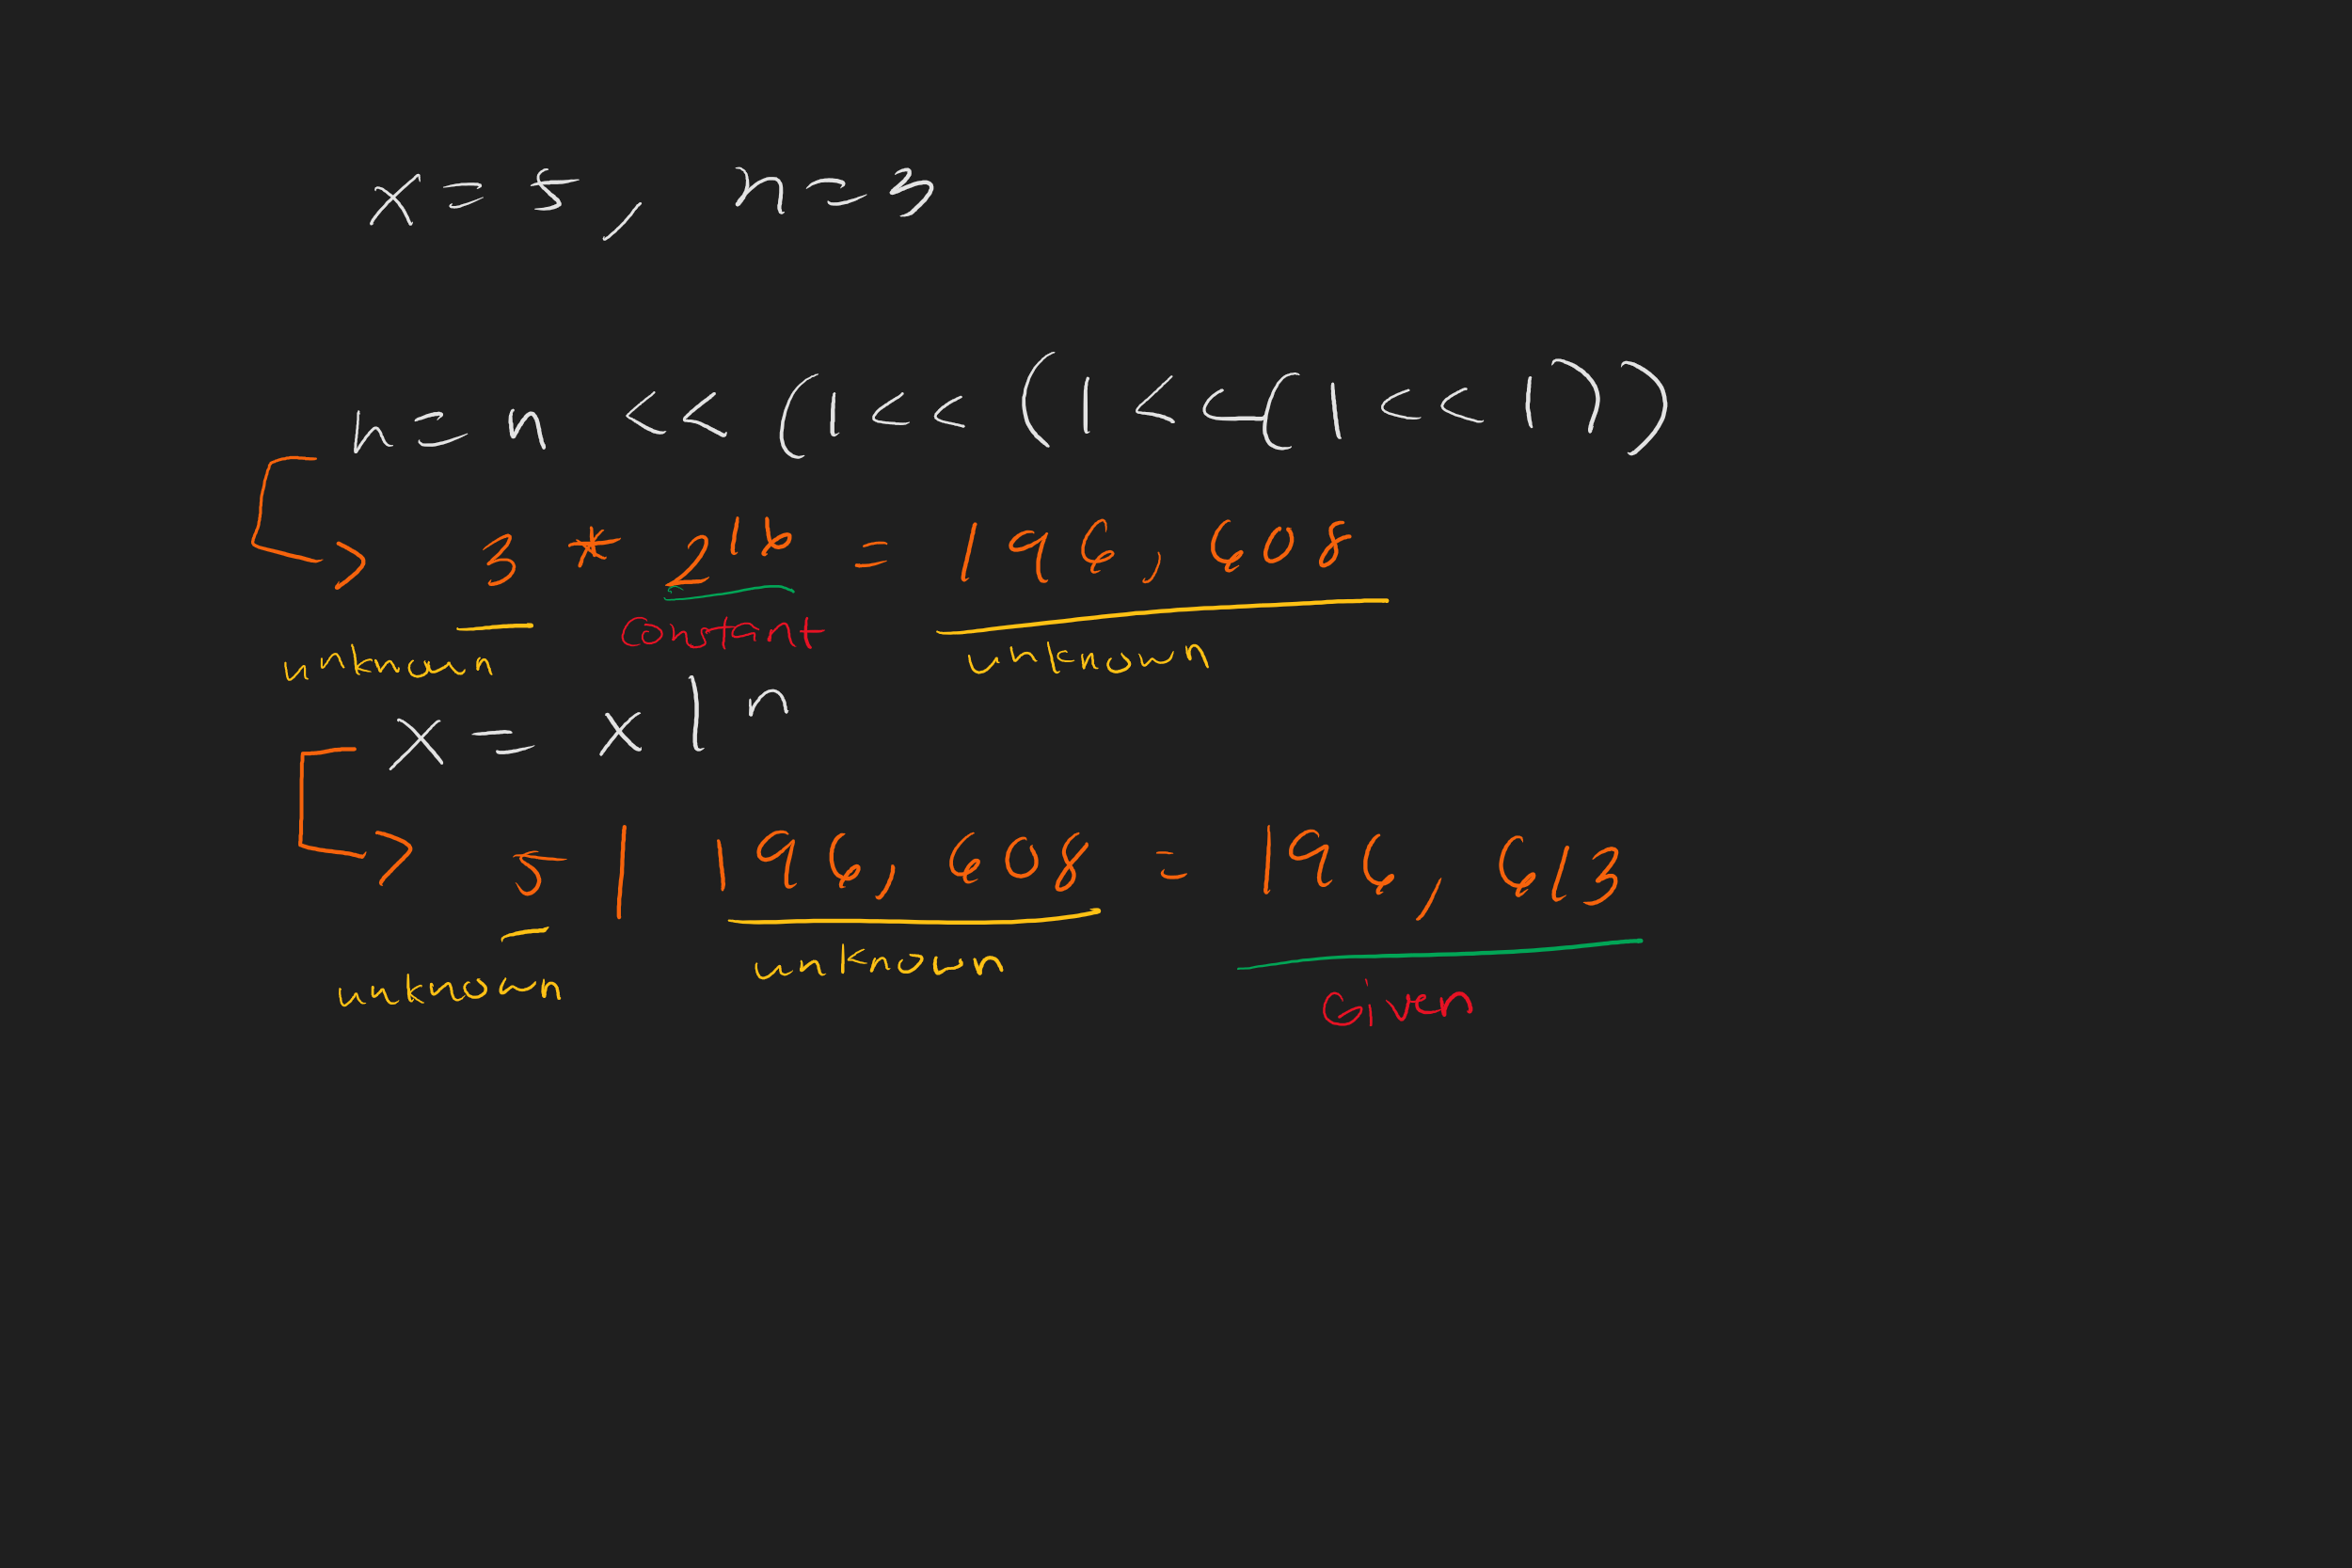 x = 5, n = 3
n = n << (1 << (1 << (1 << 1)))
3 * 2^16 = 196,608
unknown constant unknown
x = x | n
5 | 196,608 = 196,613
unknown unknown Given